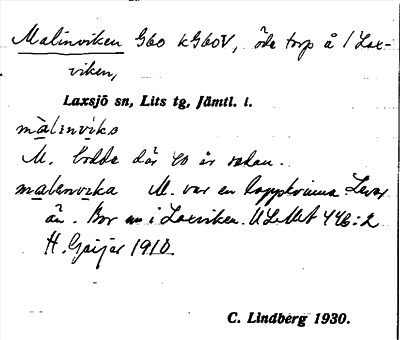 Malinviken G60 kG60V, öde torp å 1 Lax-
viken,
Laxsjö sn, Lits tg, Jämtl. l.
màlinvi̇̀ka
M. bodde där 40 år sedan.
malenvika M. var en lappkvinna. Lever
än. Bor nu i Laxviken. ULMA 446:2
H. Geijer 1910.
C. Lindberg 1930.